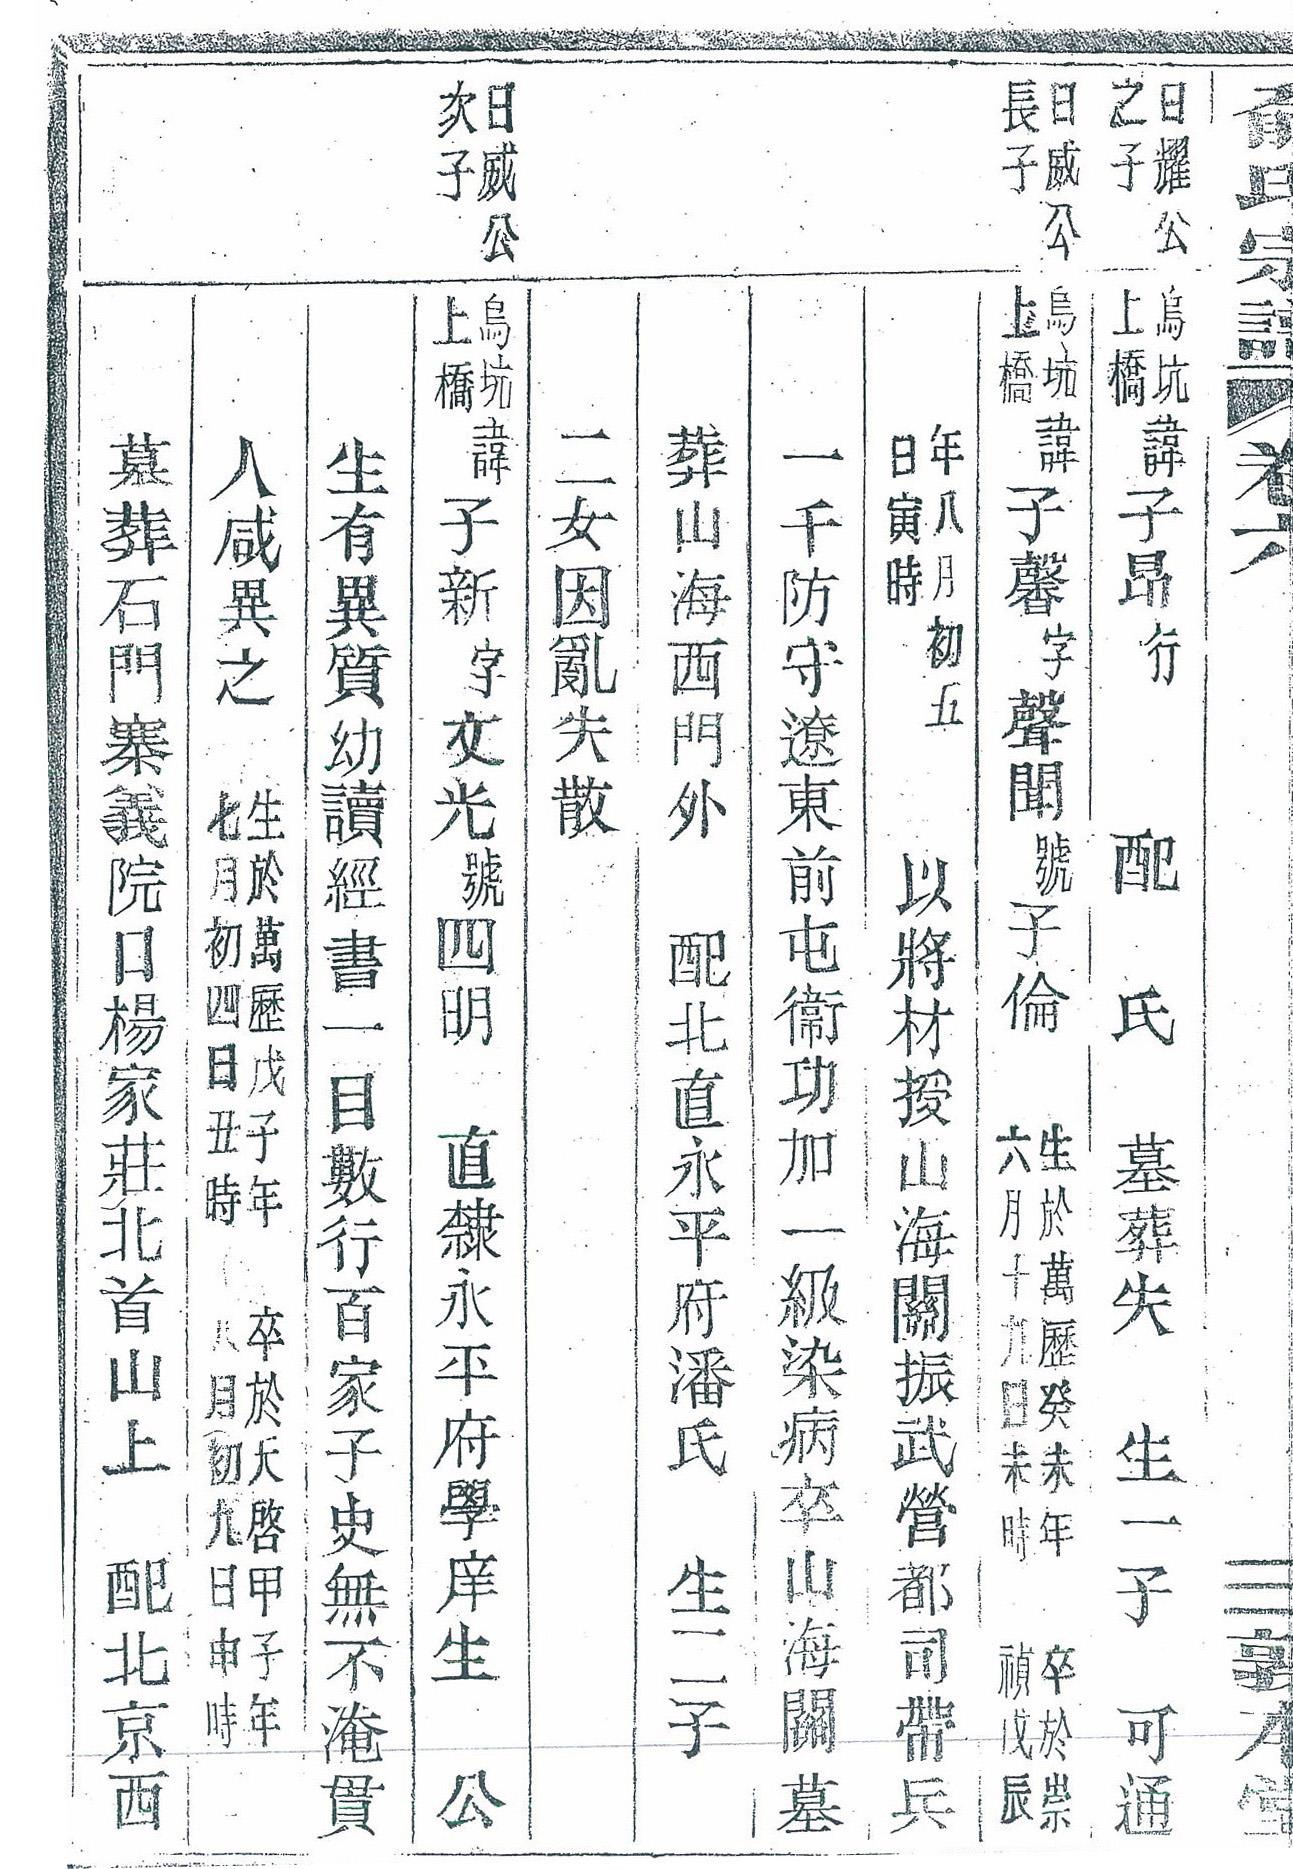 俞氏宗譜 卷六 三 敦本堂
日耀公之子
烏坑上橋 諱子昂 行 配 氏 墓葬失 生一子 可通
日威公長子
烏坑上橋 諱子馨 字聲聞 號子倫 生於萬歷癸未年六月十九日未時 卒於崇禎戊辰
年八月初五日寅時 以將材授山海關振武營都司帶兵
一千防守遼東前屯衞功加一級染病卒山海關墓
葬山海西門外 配北直永平府潘氏 生二子
二女因亂失散
日威公次子
烏坑上橋 諱子新 字文光 號四明 直隸永平府學庠生 公
生有異質幼讀經書一目數行百家子史無不淹貫
人咸異之 生於萬歷戊子年七月初四日丑時 卒於天啓甲子年八月初九日申時
墓葬石門寨義院口楊家莊北首山上 配北京西